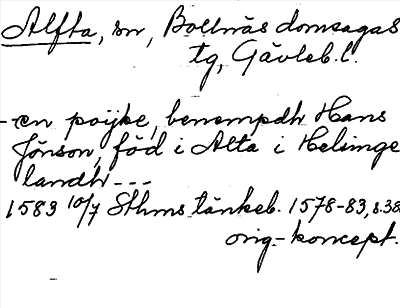 Alfta, sn, Bollnäs domsagas
tg, Gävleb. l.
- en poijke, benempdh Hans
Jönson, föd i Alta i Helsinge
landh ---
1583 10/7 Sthms tänkeb. 1578-83, s. 38
orig.-koncept.